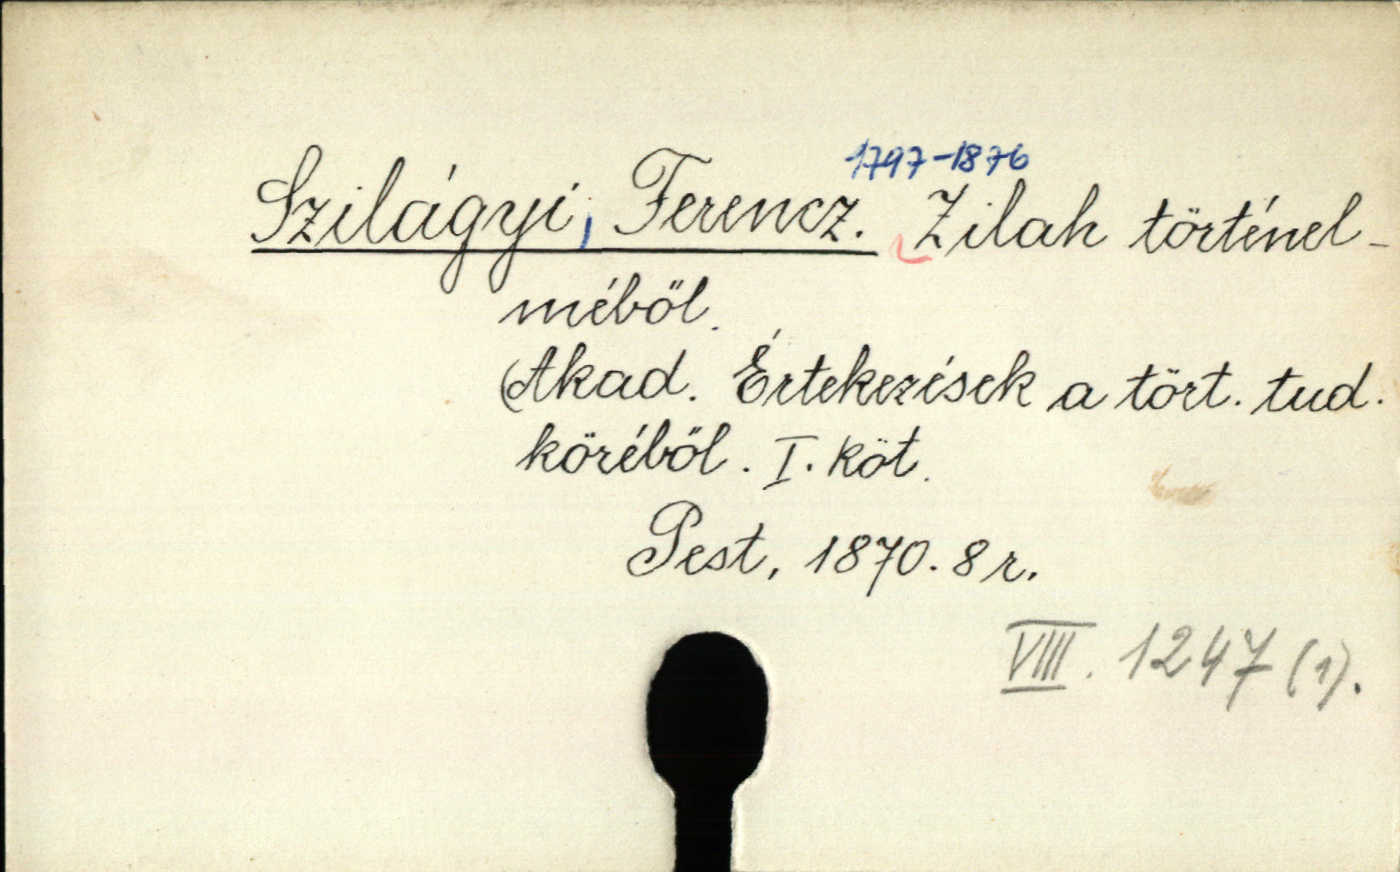 1797-1876
Szilágyi, Ferencz. Zilah történel-
méből.
(Akad. Értekezések a tört. tud.
köréből. I. köt.
Pest, 1870. 8 r.
VIII. 1247 (1).